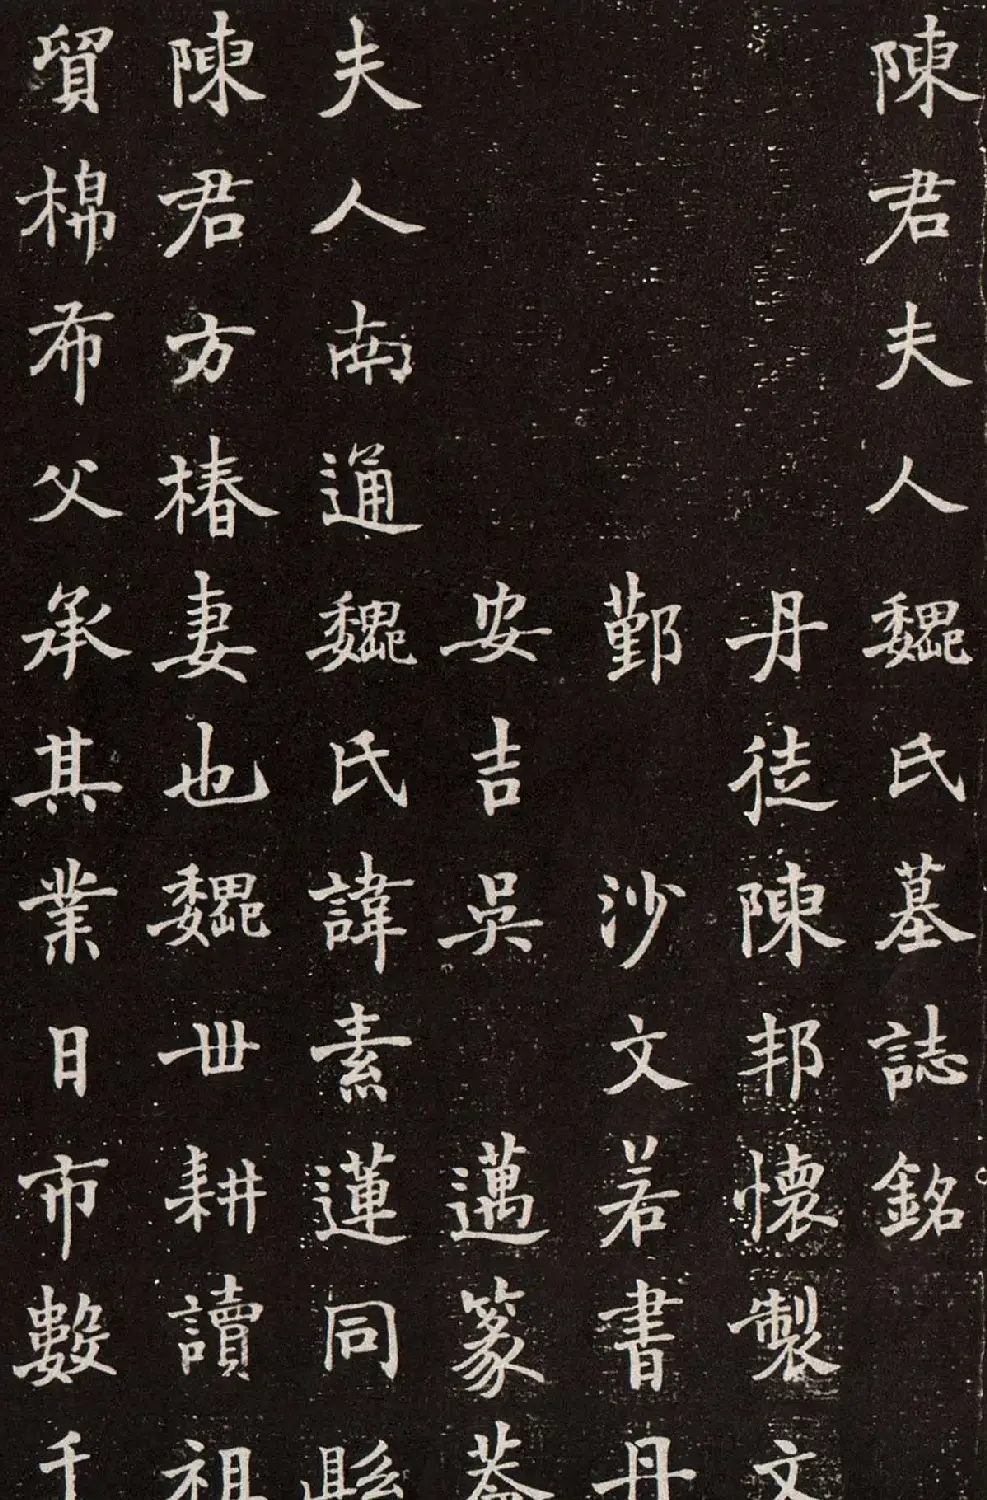 陳君夫人魏氏墓誌銘
丹徒陳邦懷製文
鄞沙文若書丹
安吉吳邁篆蓋
夫人南通魏氏諱素蓮同縣
陳君方椿妻也魏世耕讀祖
貿棉布父承其業日市數千